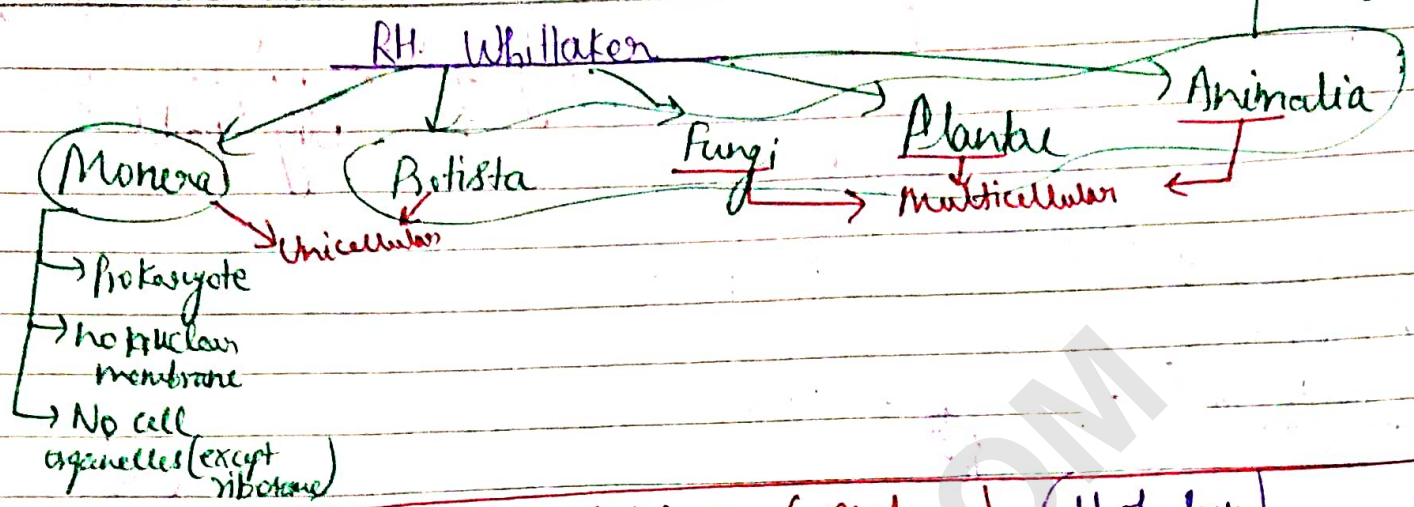 RH. Whillaker
Monera
Protista
Fungi
Plantae
Animalia
Unicellular
Multicellular
Prokaryote
no nuclear
membrane
No cell
organelles (except
ribosome)
OM